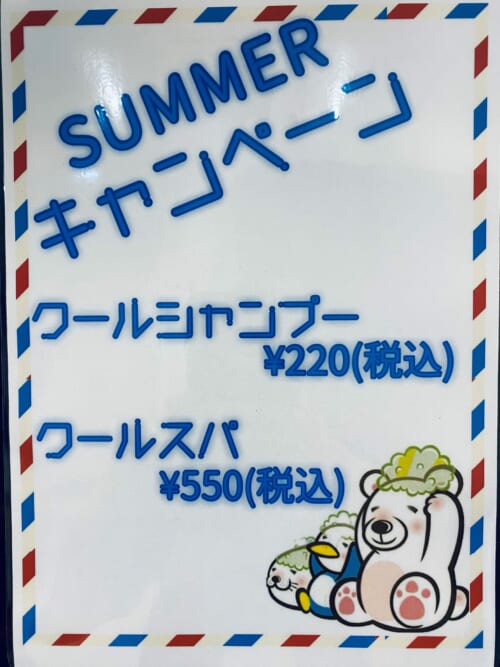 SUMMER
キャンペーン
クールシャンプー
¥220(税込)
クールスパ
¥550(税込)